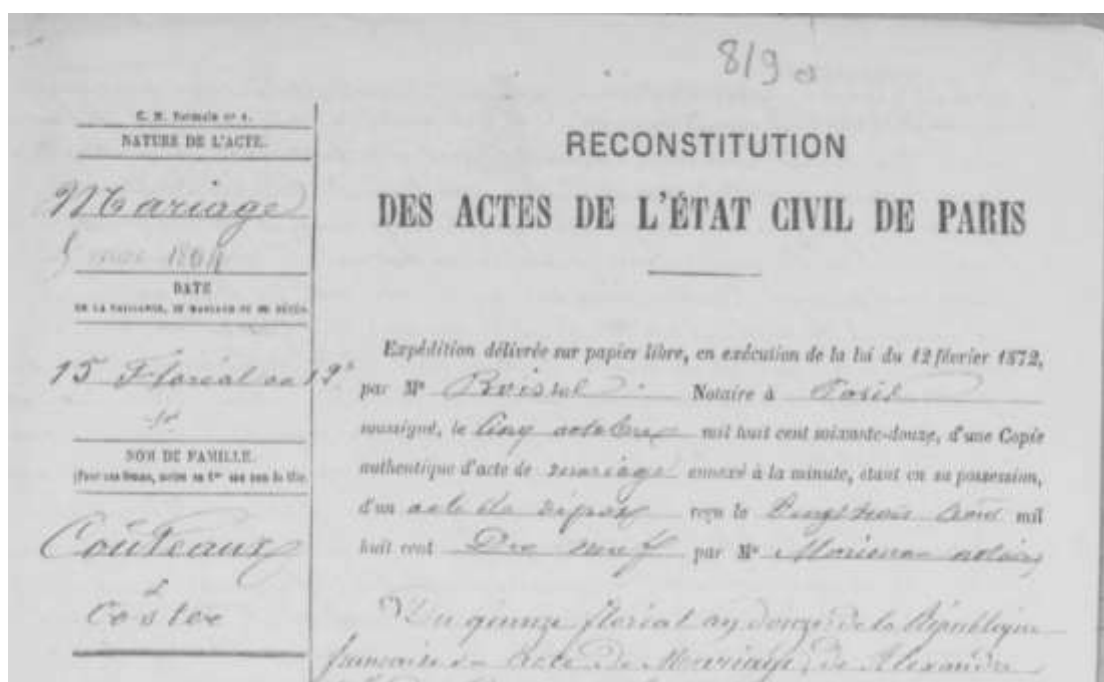 8/9
C. N. Formule nº 1.
NATURE DE L'ACTE.
Mariage
5 mai 1804
DATE
DE LA NAISSANCE, DU MARIAGE OU DU DÉCÈS.
15 Floréal an 12
NOM DE FAMILLE.
Coûteaux
&
Coster
RECONSTITUTION
DES ACTES DE L'ÉTAT CIVIL DE PARIS
Expédition délivrée sur papier libre, en exécution de la loi du 12 février 1872,
par Mᵉ Notaire à Paris
soussigné, le Cinq octobre mil huit cent soixante-douze, d'une Copie
authentique d'acte de mariage annexé à la minute, étant en sa possession,
d'un acte de dépôt reçu le Vingt trois Août mil
huit cent Dix neuf par Mᵉ notaire
Du quinze floréal an douze de la République
française Acte de Mariage de Alexandre